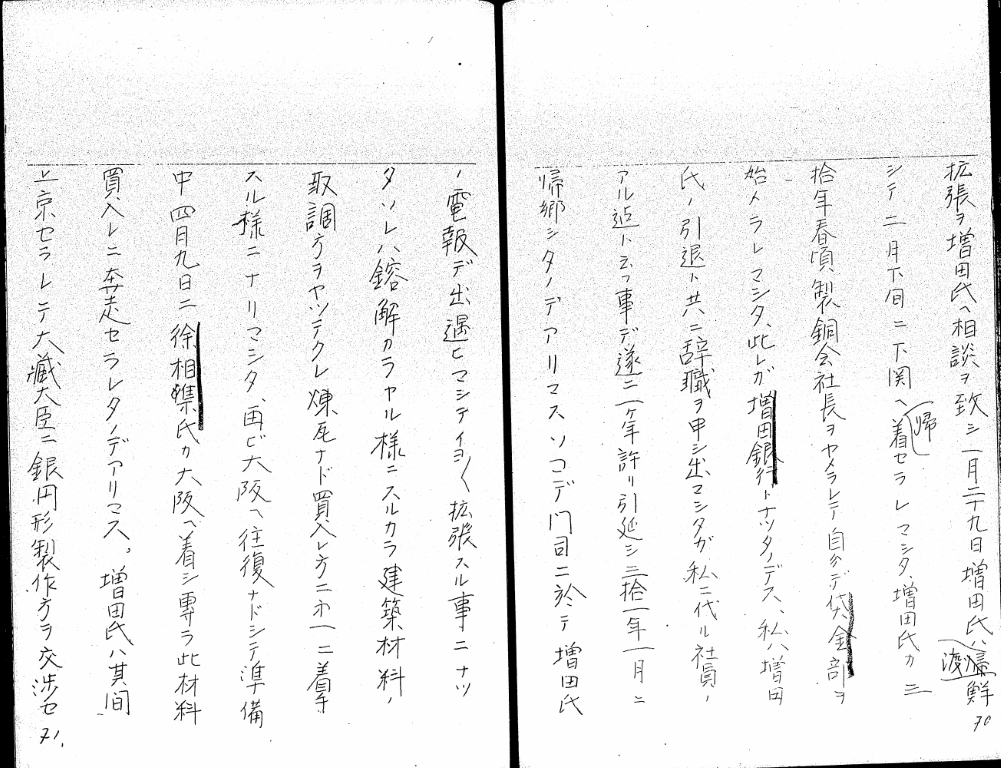 拡張ヲ増田氏ヘ相談ヲ致シ一月二十九日増田氏ハ渡鮮
シテ二月下旬ニ下関ヘ帰着セラレマシタ、増田氏カ三
拾年春頃製銅会社長ヲヤメラレテ自分デ貸金部ヲ
始メラレマシタ、此レガ増田銀行トナツタノデス、私ハ増田
氏ノ引退ト共ニ辞職ヲ申シ出マシタガ私ニ代ル社員ノ
アル迠ト云フ事デ遂ニ一ケ年許リ引延シ三拾一年一月ニ
帰郷シタノデアリマスソコデ門司ニ於テ増田氏
70
ノ電報デ出遇ヒマシテイヨ〱拡張スル事ニナツ
タソレハ鎔解カラヤル様ニスルカラ建築材料ノ
取調方ヲヤツテクレ煉瓦ナド買入レ方ニオ一ニ着手
スル様ニナリマシタ、再ビ大阪ヘ往復ナドシテ準備
中四月九日ニ徐相集氏カ大阪ヘ着シ専ラ此材料
買入レニ奔走セラレタノデアリマス。増田氏ハ其间
上京セラレテ大藏大臣ニ銀円形製作方ヲ交渉セ
71.